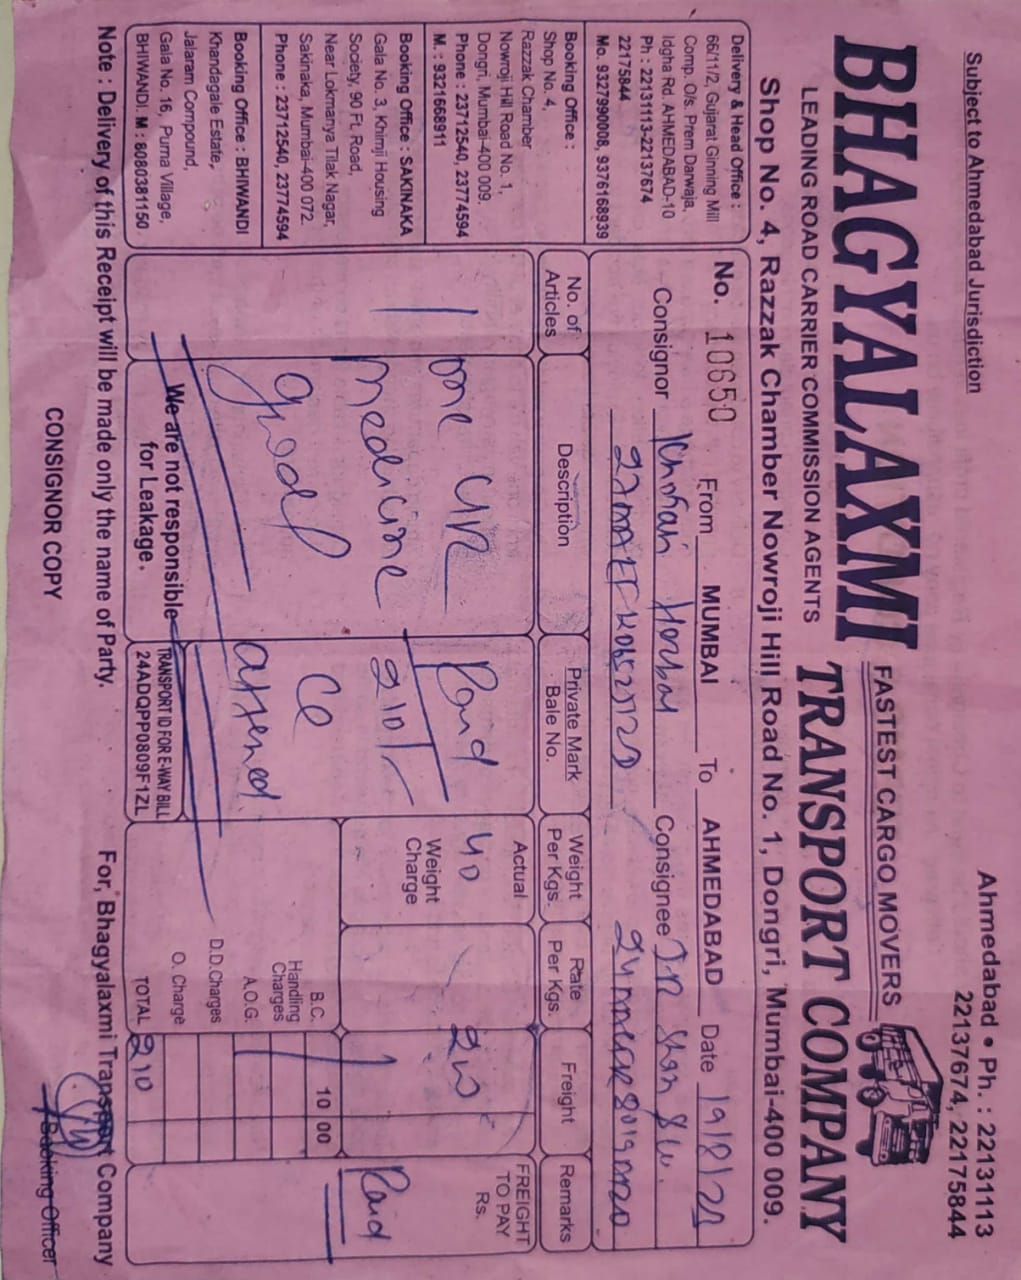 Subject to Ahmedabad Jurisdiction
Ahmedabad • Ph. : 22131113
22137674, 22175844
BHAGYALAXMI TRANSPORT COMPANY
FASTEST CARGO MOVERS
LEADING ROAD CARRIER COMMISSION AGENTS
Shop No. 4, Razzak Chamber Nowroji Hill Road No. 1, Dongri, Mumbai-400 009.
Delivery & Head Office :
66/11/2, Gujarat Ginning Mill
Comp. O/s. Prem Darwaja,
Idgha Rd. AHMEDABAD-10
Ph : 22131113-22137674
22175844
Mo. 9327990008, 9376168939
Booking Office :
Shop No. 4,
Razzak Chamber
Nowroji Hill Road No. 1,
Dongri, Mumbai-400 009.
Phone : 23712540, 23774594
M. : 9321668911
Booking Office : SAKINAKA
Gala No. 3, Khimji Housing
Society, 90 Ft. Road,
Near Lokmanya Tilak Nagar,
Sakinaka, Mumbai-400 072.
Phone : 23712540, 23774594
Booking Office : BHIWANDI
Khandagale Estate,
Jalaram Compound,
Gala No. 16, Purna Village,
BHIWANDI. M : 8080381150
No. 10650 From MUMBAI To AHMEDABAD Date 19/8/22
Consignor Consignee
No. of Articles
Description
Private Mark Bale No.
Weight Per Kgs.
Rate Per Kgs.
Freight
Remarks
1
medicine
good
Paid
210/-
Actual
40
Weight Charge
FREIGHT TO PAY Rs.
Paid
B.C. 10 00
Handling Charges
A.O.G.
D.D.Charges
O. Charge
TOTAL 210
We are not responsible for Leakage.
TRANSPORT ID FOR E-WAY BILL
24ADQPP0809F1ZL
Note : Delivery of this Receipt will be made only the name of Party.
For, Bhagyalaxmi Transport Company
Booking Officer
CONSIGNOR COPY